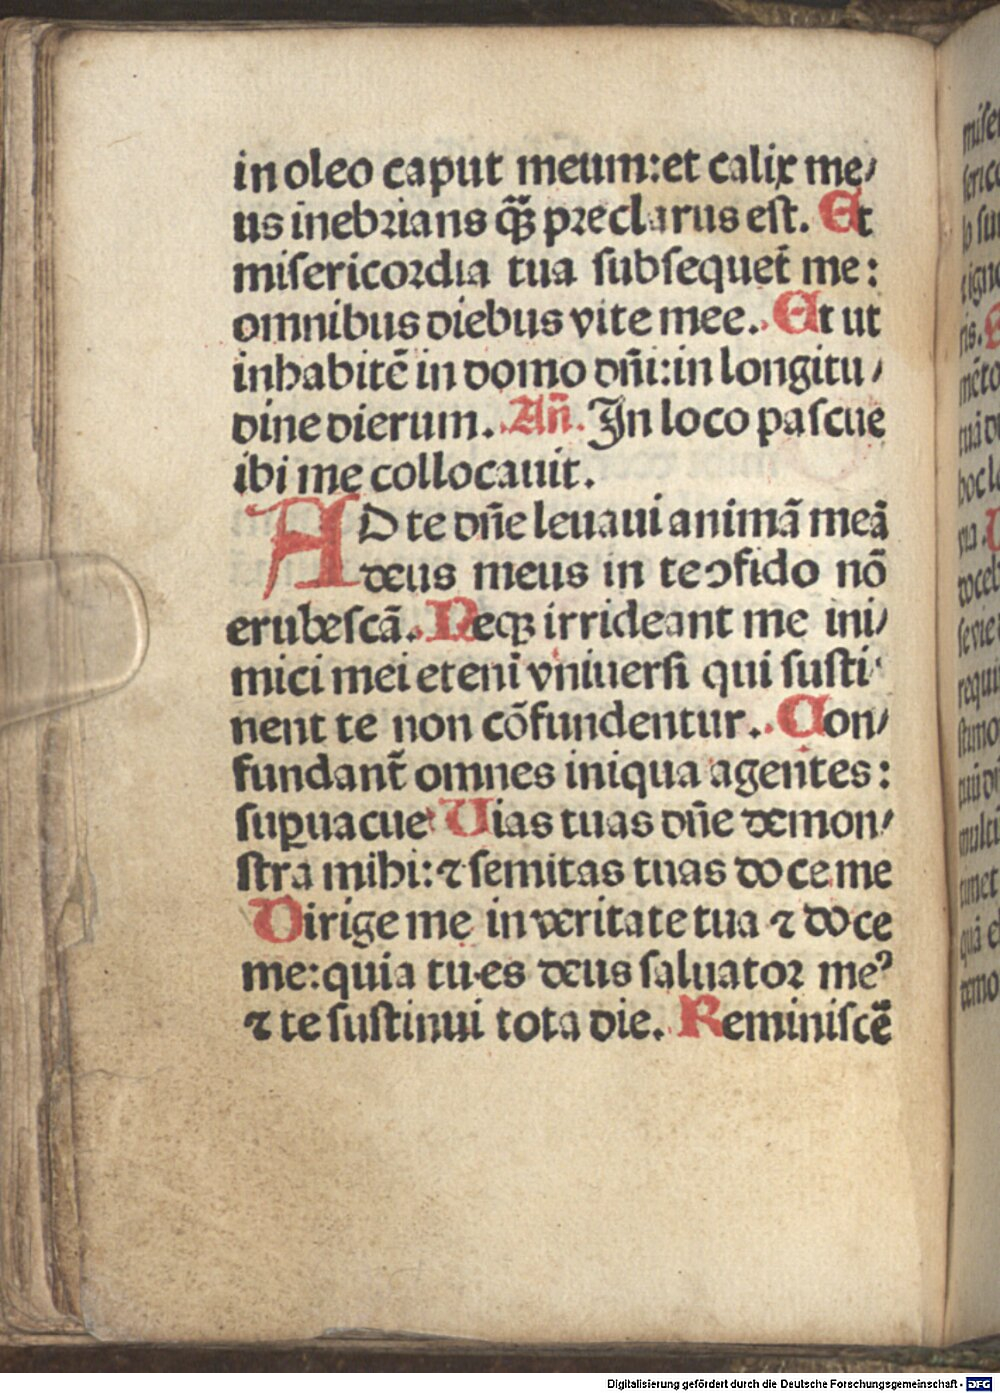 in oleo caput meum:et calix me/
us inebrians q̃ꝫ preclarus est. Et
misericordia tua subsequet̃ me:
omnibus diebus vite mee. Et ut
inhabitẽ in domo dñi:in longitu/
dine dierum. Añ. In loco pascue
ibi me collocauit.
AD te dñe leuaui animã meã
deus meus in te ↄfido nõ
erubescã. Neqꝫ irrideant me ini/
mici mei etenĩ vniuersi qui susti
nent te non cõfundentur. Con/
fundant̃ omnes iniqua agentes:
suꝑuacue Uias tuas dñe demon/
stra mihi:⁊ semitas tuas doce me
Dirige me in veritate tua ⁊ doce
me:quia tu es deus saluator meꝰ
⁊ te sustinui tota die. Reminiscẽ
Digitalisierung gefördert durch die Deutsche Forschungsgemeinschaft - DFG